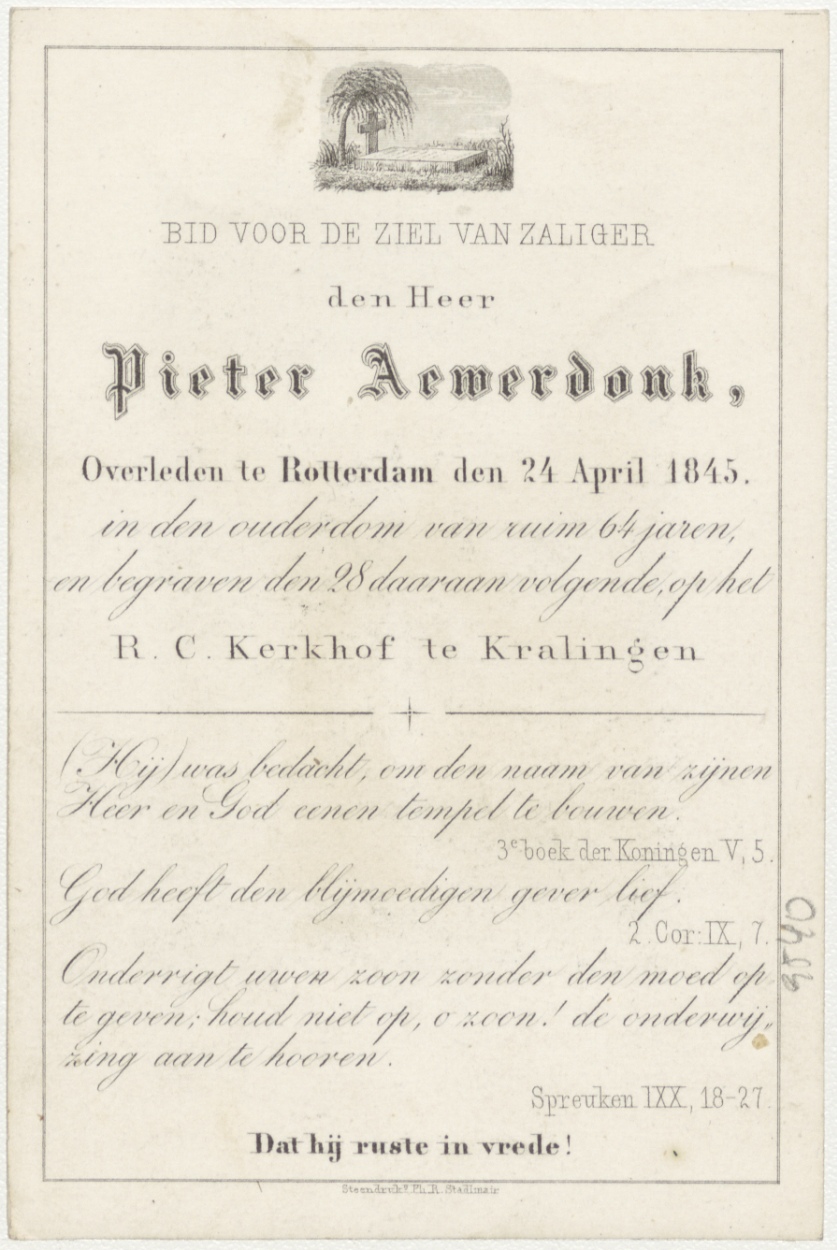 BID VOOR DE ZIEL VAN ZALIGER
den Heer
Pieter Aewerdonk,
Overleden te Rotterdam den 24 April 1845.
in den ouderdom van ruim 64 jaren,
en begraven den 28 daaraan volgende, op het
R. C. Kerkhof te Kralingen
(Hij) was bedacht, om den naam van zijnen
Heer en God eenen tempel te bouwen.
3e boek der Koningen V, 5.
God heeft den blijmoedigen gever lief.
2. Cor: IX, 7.
Onderrigt uwen zoon zonder den moed op
te geven; houd niet op, o zoon! de onderwij„
zing aan te hooren.
Spreuken IXX, 18-27.
Dat hij ruste in vrede!
Steendrukk. Ph. R. Stadlmair